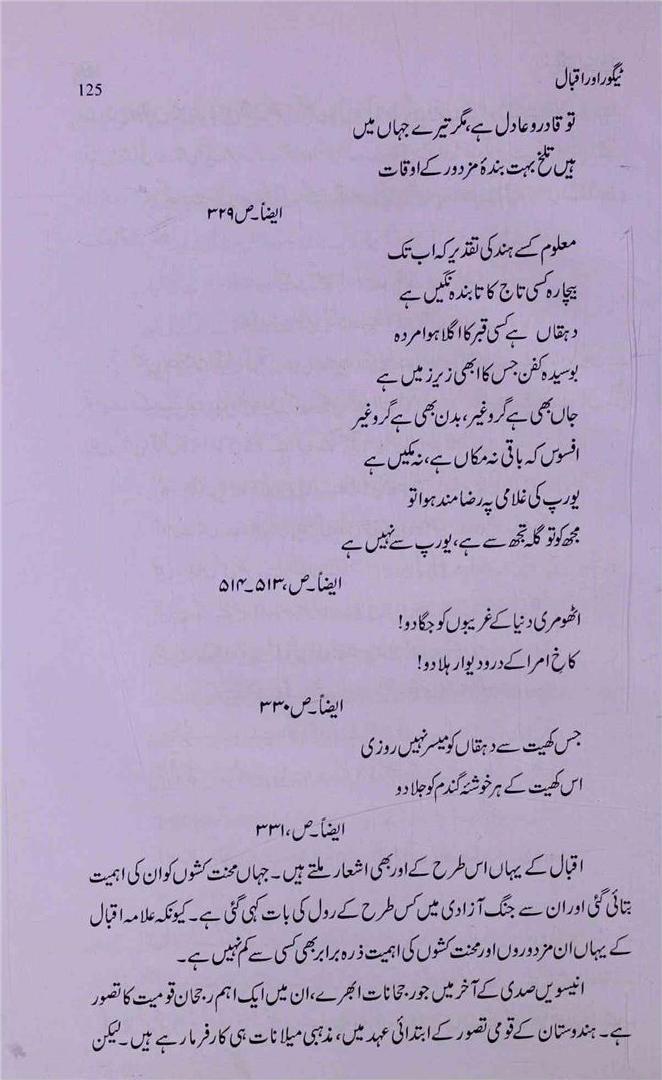 ٹیگور اور اقبال
125
تو قادر و عادل ہے، مگر تیرے جہاں میں
ہیں تلخ بہت بندۂ مزدور کے اوقات
ایضاً۔ ص ۳۲۹
معلوم کسے ہند کی تقدیر کہ اب تک
بیچارہ کسی تاج کا تابندہ نگیں ہے
دہقاں ہے کسی قبر کا اگلا ہوا مردہ
بوسیدہ کفن جس کا ابھی زیر زمیں ہے
جاں بھی ہے گرو غیر، بدن بھی ہے گرو غیر
افسوس کہ باقی نہ مکاں ہے، نہ مکیں ہے
یورپ کی غلامی پہ رضا مند ہوا تو
مجھ کو تو گلہ تجھ سے ہے، یورپ سے نہیں ہے
ایضاً۔ ص، ۵۱۳۔ ۵۱۴
اٹھو مری دنیا کے غریبوں کو جگا دو!
کاخِ امرا کے در و دیوار ہلا دو!
ایضاً۔ ص ۳۳۰
جس کھیت سے دہقاں کو میسر نہیں روزی
اس کھیت کے ہر خوشئہ گندم کو جلا دو
ایضاً۔ ص، ۳۳۱
اقبال کے یہاں اس طرح کے اور بھی اشعار ملتے ہیں۔ جہاں محنت کشوں کو ان کی اہمیت
بتائی گئی اور ان سے جنگ آزادی میں کس طرح کے رول کی بات کہی گئی ہے۔ کیونکہ علامہ اقبال
کے یہاں ان مزدوروں اور محنت کشوں کی اہمیت ذرہ برابر بھی کسی سے کم نہیں ہے۔
انیسویں صدی کے آخر میں جو رجحانات ابھرے، ان میں ایک اہم رجحان قومیت کا تصور
ہے۔ ہندوستان کے قومی تصور کے ابتدائی عہد میں، مذہبی میلانات ہی کارفرما رہے ہیں۔ لیکن